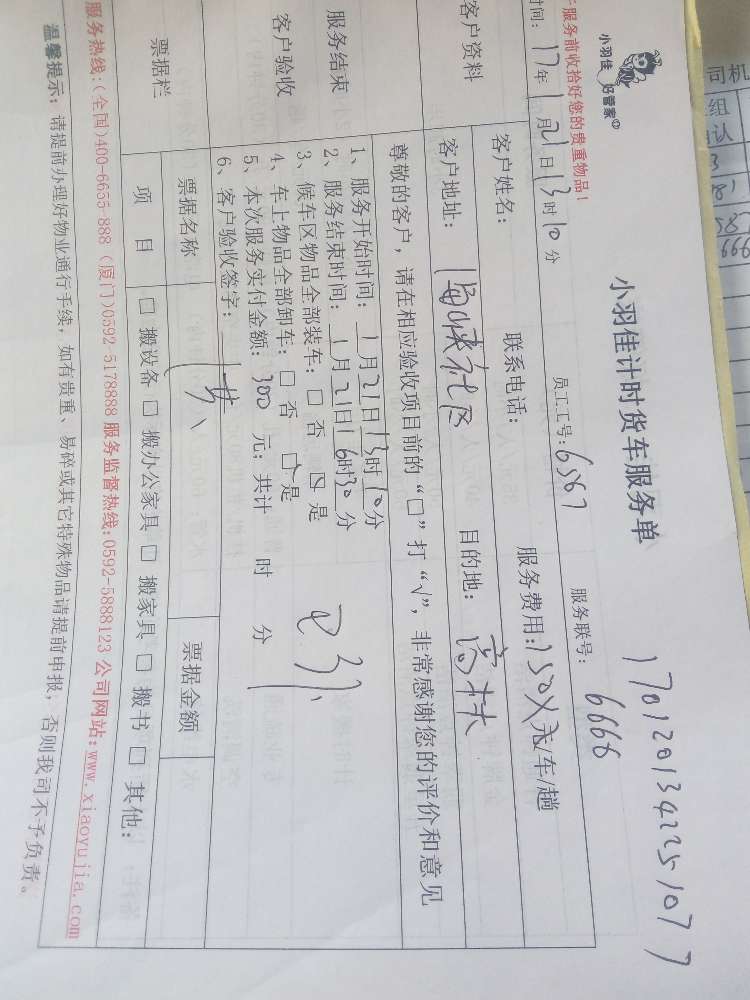 小羽佳 好管家
小羽佳计时货车服务单
1701201342251077
服务前收拾好您的贵重物品！
时间：17年1月21日13时10分 员工工号：6567 服务联号：6666
客户资料
客户姓名： 联系电话： 服务费用：150X元/车/趟
客户地址： 社区 目的地：高林
尊敬的客户，请在相应验收项目前的“□”打“√”，非常感谢您的评价和意见
服务结束
客户验收
1、服务开始时间：1月21日13时10分
2、服务结束时间：1月21日16时30分
3、候车区物品全部装车：□ 否 □ 是
4、车上物品全部卸车：□ 否 □ 是
5、本次服务实付金额：300 元；共计 时 分
6、客户验收签字：
票据栏
票据名称 票据金额
项 目 □ 搬设备 □ 搬办公家具 □ 搬家具 □ 搬书 □ 其他：
服务热线：(全国)400-6655-888 (厦门)0592-5178888 服务监督热线：0592-5888123 公司网站：www.xiaoyujia.com
温馨提示：请提前办理好物业通行手续，如有贵重、易碎或其它特殊物品请提前申报，否则我司不予负责。
司机
组
认
666